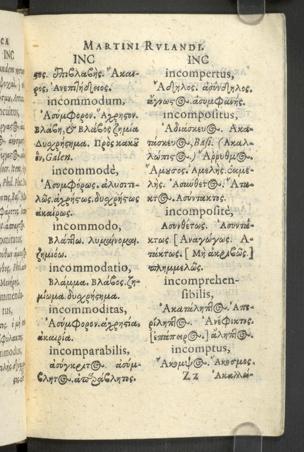 MARTINI RVLANDI.
INC
τος. ἐπιβλαβής. Ἄκαι-
ρος, Ἀνεπιτήδειος.
incommodum,
Ἀσύμφορον. Ἄχρηστον.
Βλάβη, & βλάβος ζημία
Δυσχρήστημα. Πρὸς κακοῦ
ὄν, Galen.
incommodè,
Ἀσυμφόρως. ἀλυσιτε-
λῶς. ἀχρήστως. δυσχρήστως
ἀκαίρως.
incommodo,
Βλάπτω. λυμαίνομαι.
ζημιόω.
incommodatio,
Βλάμμα. Βλάβος. ζη-
μίωμα. δυσχρήστημα.
incommoditas,
Ἀσύμφορον. ἀχρηστία,
ἀκαιρία.
incomparabilis,
ἀσύγκριτος. ἀσύμ-
βλητος.
INC
incompertus,
Ἄδηλος. ἀσύνδηλος.
ἄγνωστος. ἀσυμφανής.
incompositus,
Ἀδιάσκευος. Ἀκα-
τάσκευος, Basi. (Ἀκαλ-
λώπιστος.) Ἄρρυθμος.
Ἄμετρος. Ἀμελής.
Ἀσύνθετος. Ἄτα-
κτος. Ἀσύντακτος.
incompositè,
Ἀσυνθέτως. Ἀσυντά-
κτως. [Ἀναγώγως. Ἀ-
τάκτως. [Μὴ ἀκριβῶς.]
πλημμελῶς.
incomprehen-
sibilis,
Ἀκατάληπτος. Ἀπε-
ρίληπτος. Ἀνέφικτος.
ἄληπτος.
incomptus,
Ἄκομψος. Ἄκοσμος.
Zz Ἀκαλλώ-